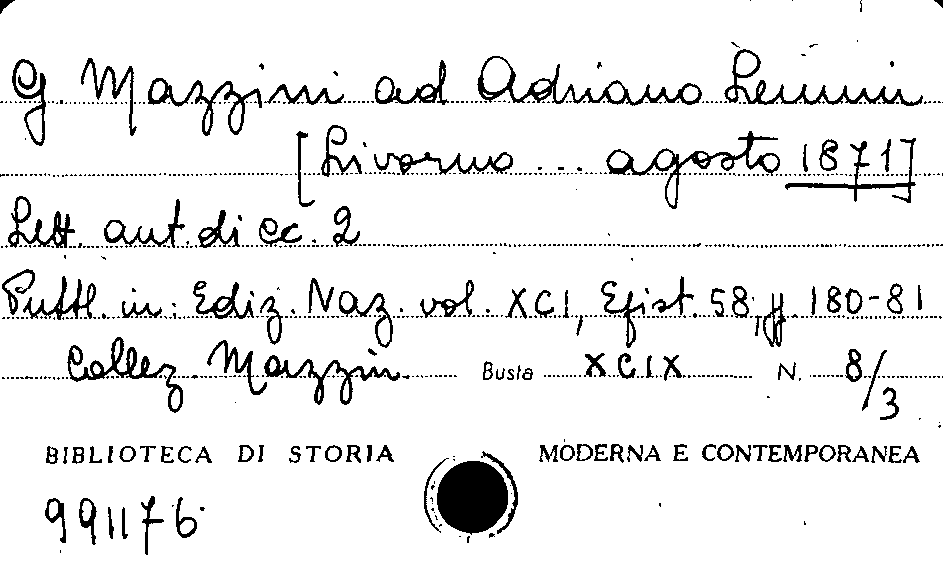 G. Mazzini ad Adriano Lemmi
[Livorno ... agosto 1871]
Lett. aut. di cc. 2
Pubbl. in: Ediz. Naz. vol. XCI, Epist. 58, pp. 180-81
Collez. Mazzini Busta XCIX N. 8/3
BIBLIOTECA DI STORIA MODERNA E CONTEMPORANEA
991176